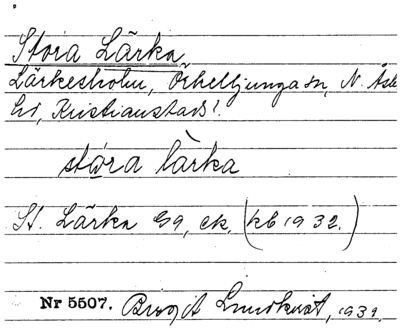 Stora Lärka
Lärkesholm, Örkelljunga sn, N. Åsbo
hd, Kristianstads l.
stóra lärka
St. Lärka Gg, ek. (kb 1932.)
Nr 5507. Birgit Lundkvist, 1932.